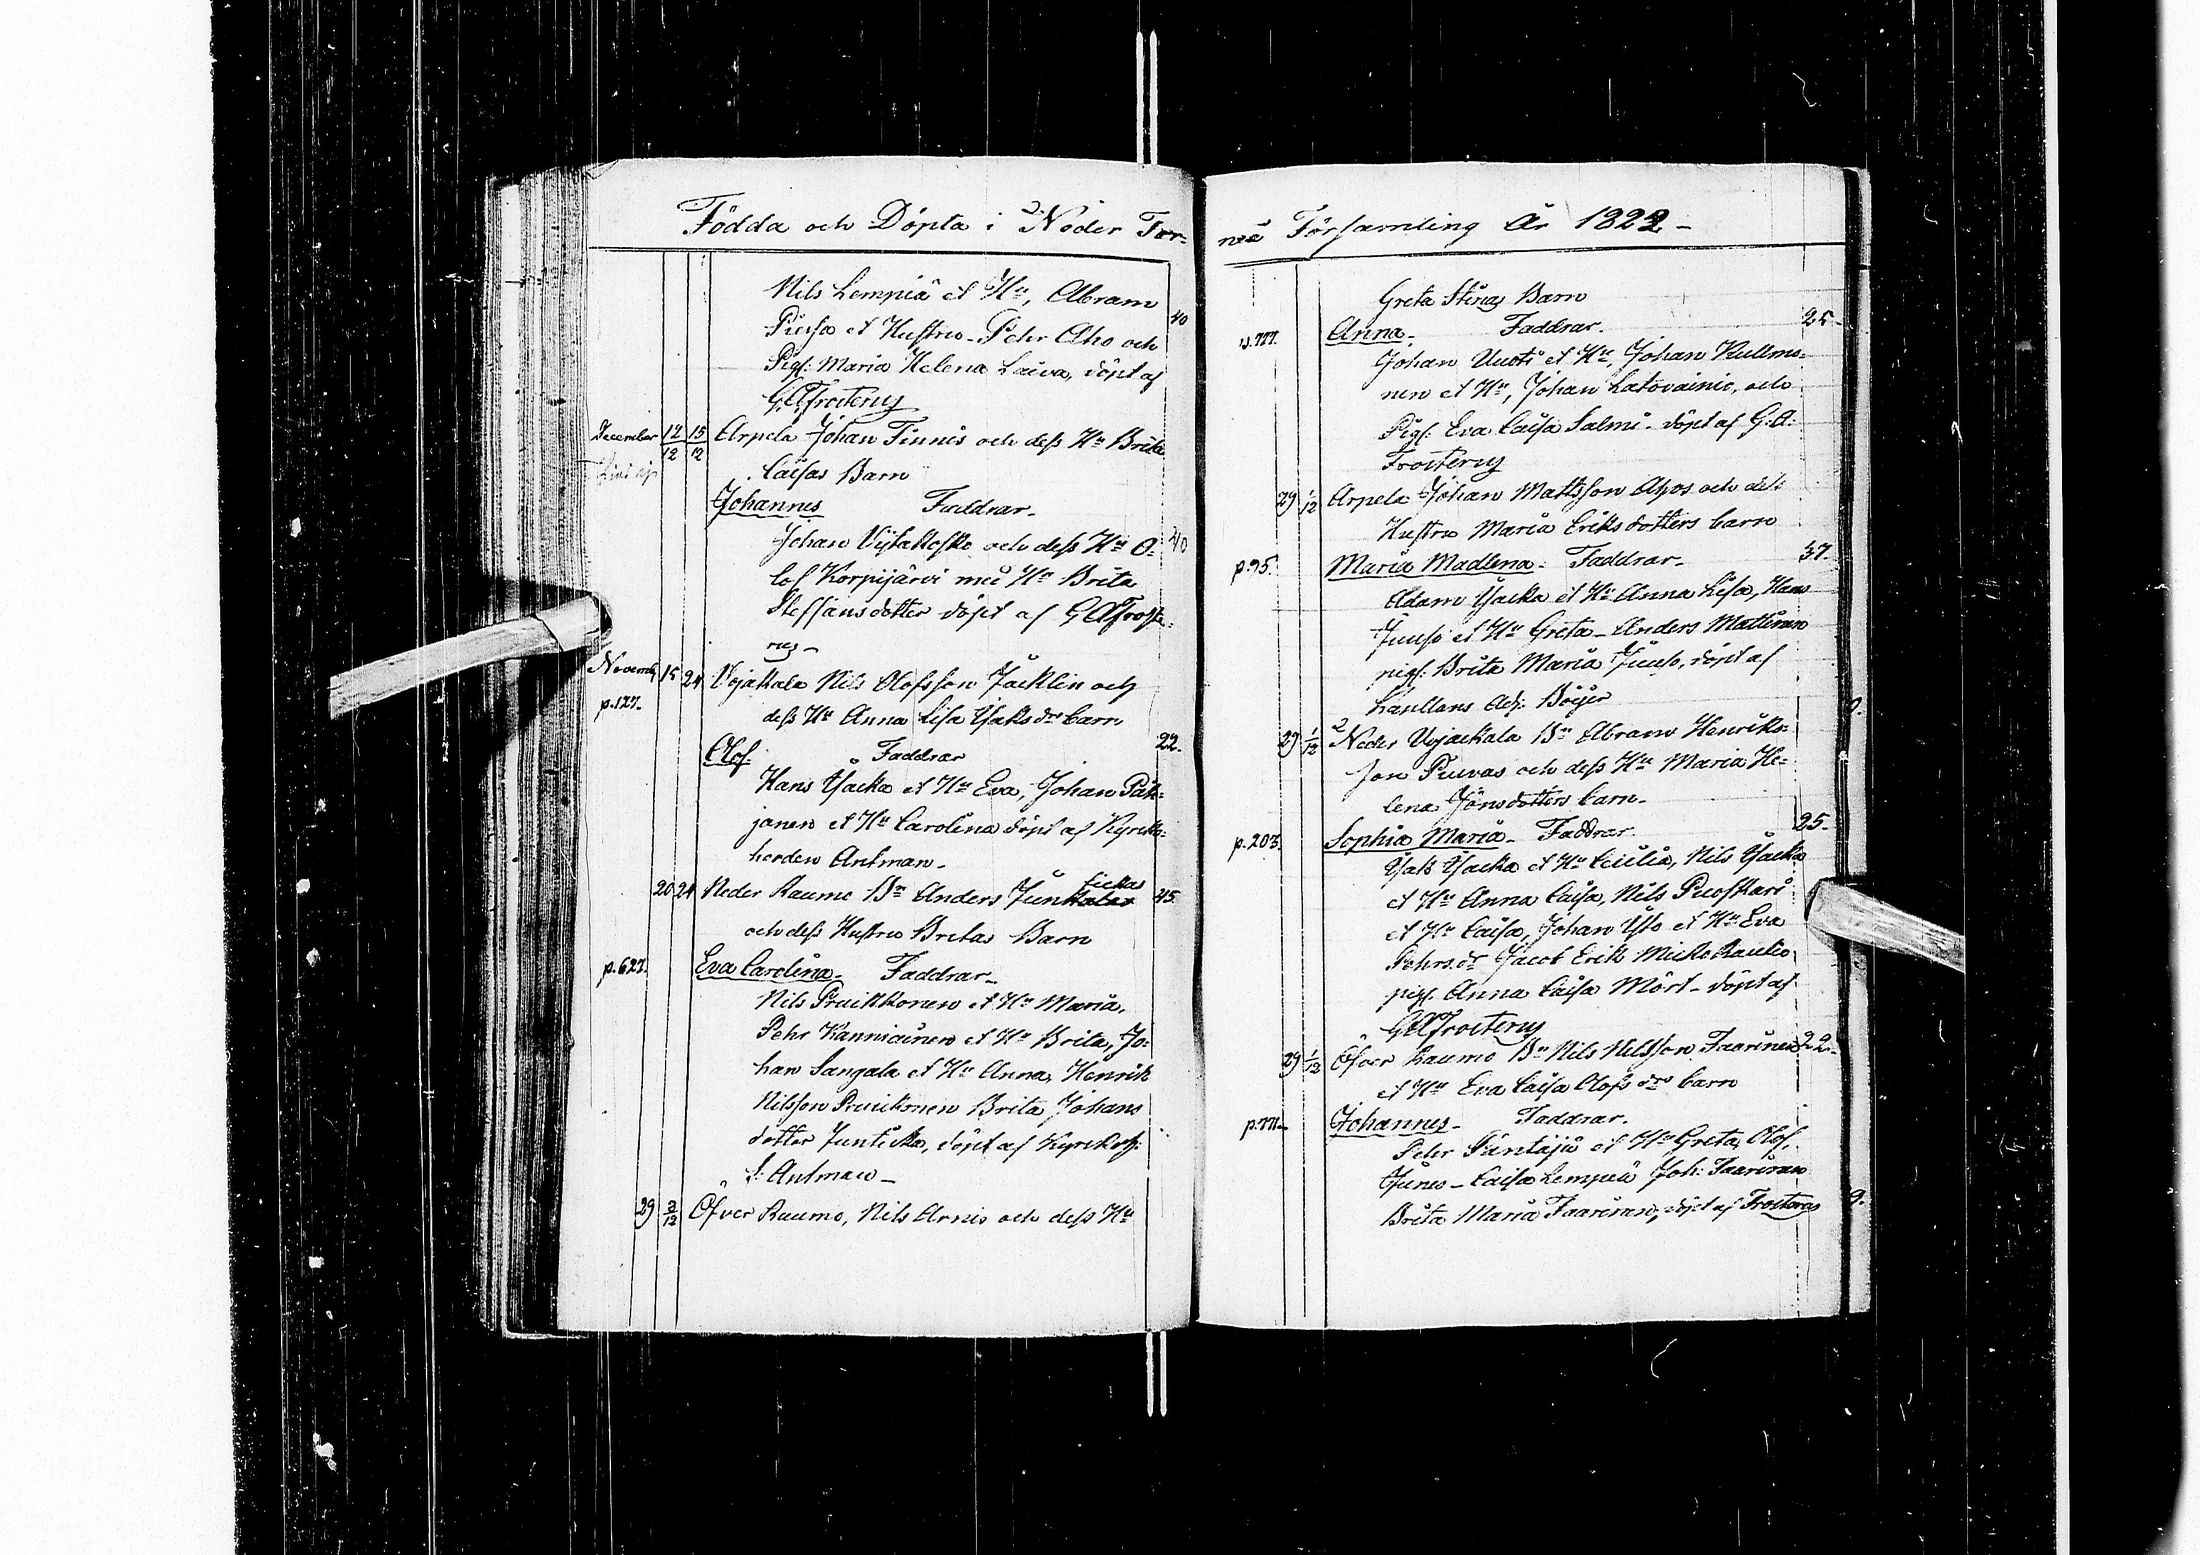 Födda och Döpta i Neder Tor-
Nils Lempiä et Hu, Abram
Piusa et Hustru - Pehr Aho och 40
Pig: Maria Helena Laiva, döpt af
G A Frosterus
December 12/12 15/12 Arpela Johan Tinnis och dess Hu Brita
Caisas Barn
Johannes Faddrar.
Johan Vijtakoski och dess Hu O- 40
lof Korpijärvi med Hu Brita
Steffansdotter döpt af G A Froste-
rus -
Novemb 15 24 Vojakala Nils Olofsson Jäcklin och
p.127. dess Hu Anna Lisa Isaksdrs barn
Olof. Faddrar 22.
Hans Ysacka et Hu Eva, Johan Päk-
janen et Hu Carolina döpt af Kyrko-
herden Antman -
tickas
20 24 Neder Raumo Bn Anders Jun 45
och dess Hustru Britas Barn
p.627. Eva Carolina - Faddrar -
Nils Pruikkonen et Hu Maria,
Pehr Kanniainen et Hu Brita, Jo-
han Sangala et Hu Anna, Henrik
Nilsson Pruikonen Brita Johans
dotter Junticka, döpt af Kyrkoh:
Antman -
29 2/12 Öfver Raumo, Nils Arnis och dess Hu
neå Församling År 1822. -
Greta Stinas Barn
p.777. Anna - Faddrar. 25.
Johan Uusti et Hu, Johan Kullmo-
nen et Hu, Johan Latovainio, och
Pig: Eva Caisa Salmi - döpt af G: A:
Frosterus
29 1/12 Arpela Johan Mattsson Ahos och des
Hustru Maria Eriksdotters barn
p.95. Maria Madlena - Faddrar - 37.
Adam Ysacka et Hu Anna Lisa, Hans
Juuso et Hu Greta - Anders Mattinen
pig: Brita Maria Juuso, döpt af
Adj. Böijer
29 1/12 Neder Vojackala Bn Abram Henriks-
son Ruvas och dess Hu Maria He-
lena Jönsdotters barn -
p.203. Sophia Maria - Faddrar. 25.
Ysak Ysacka et Hu Cecilia, Nils Ysacka
et Hu Anna Caisa, Nils Puoskari
et Hu Caisa, Johan Ylto et Hu Eva
Pehrs dr Jacob Erik Micko Raulio
pig: Anna Caisa Mört - döpt af
G A Frosterus
29 1/12 Öfver Raumo Bn Nils Nilsson Faarinen 22.
et Hu Eva Caisa Olofs drs barn
p.77. Johannes - Faddrar.
Pehr Päntäjä et Hu Greta, Olof
Junes - Caisa Lempiä Joh: Faarinen
Brita Maria Faarinen, döpt af Frosterus 9.